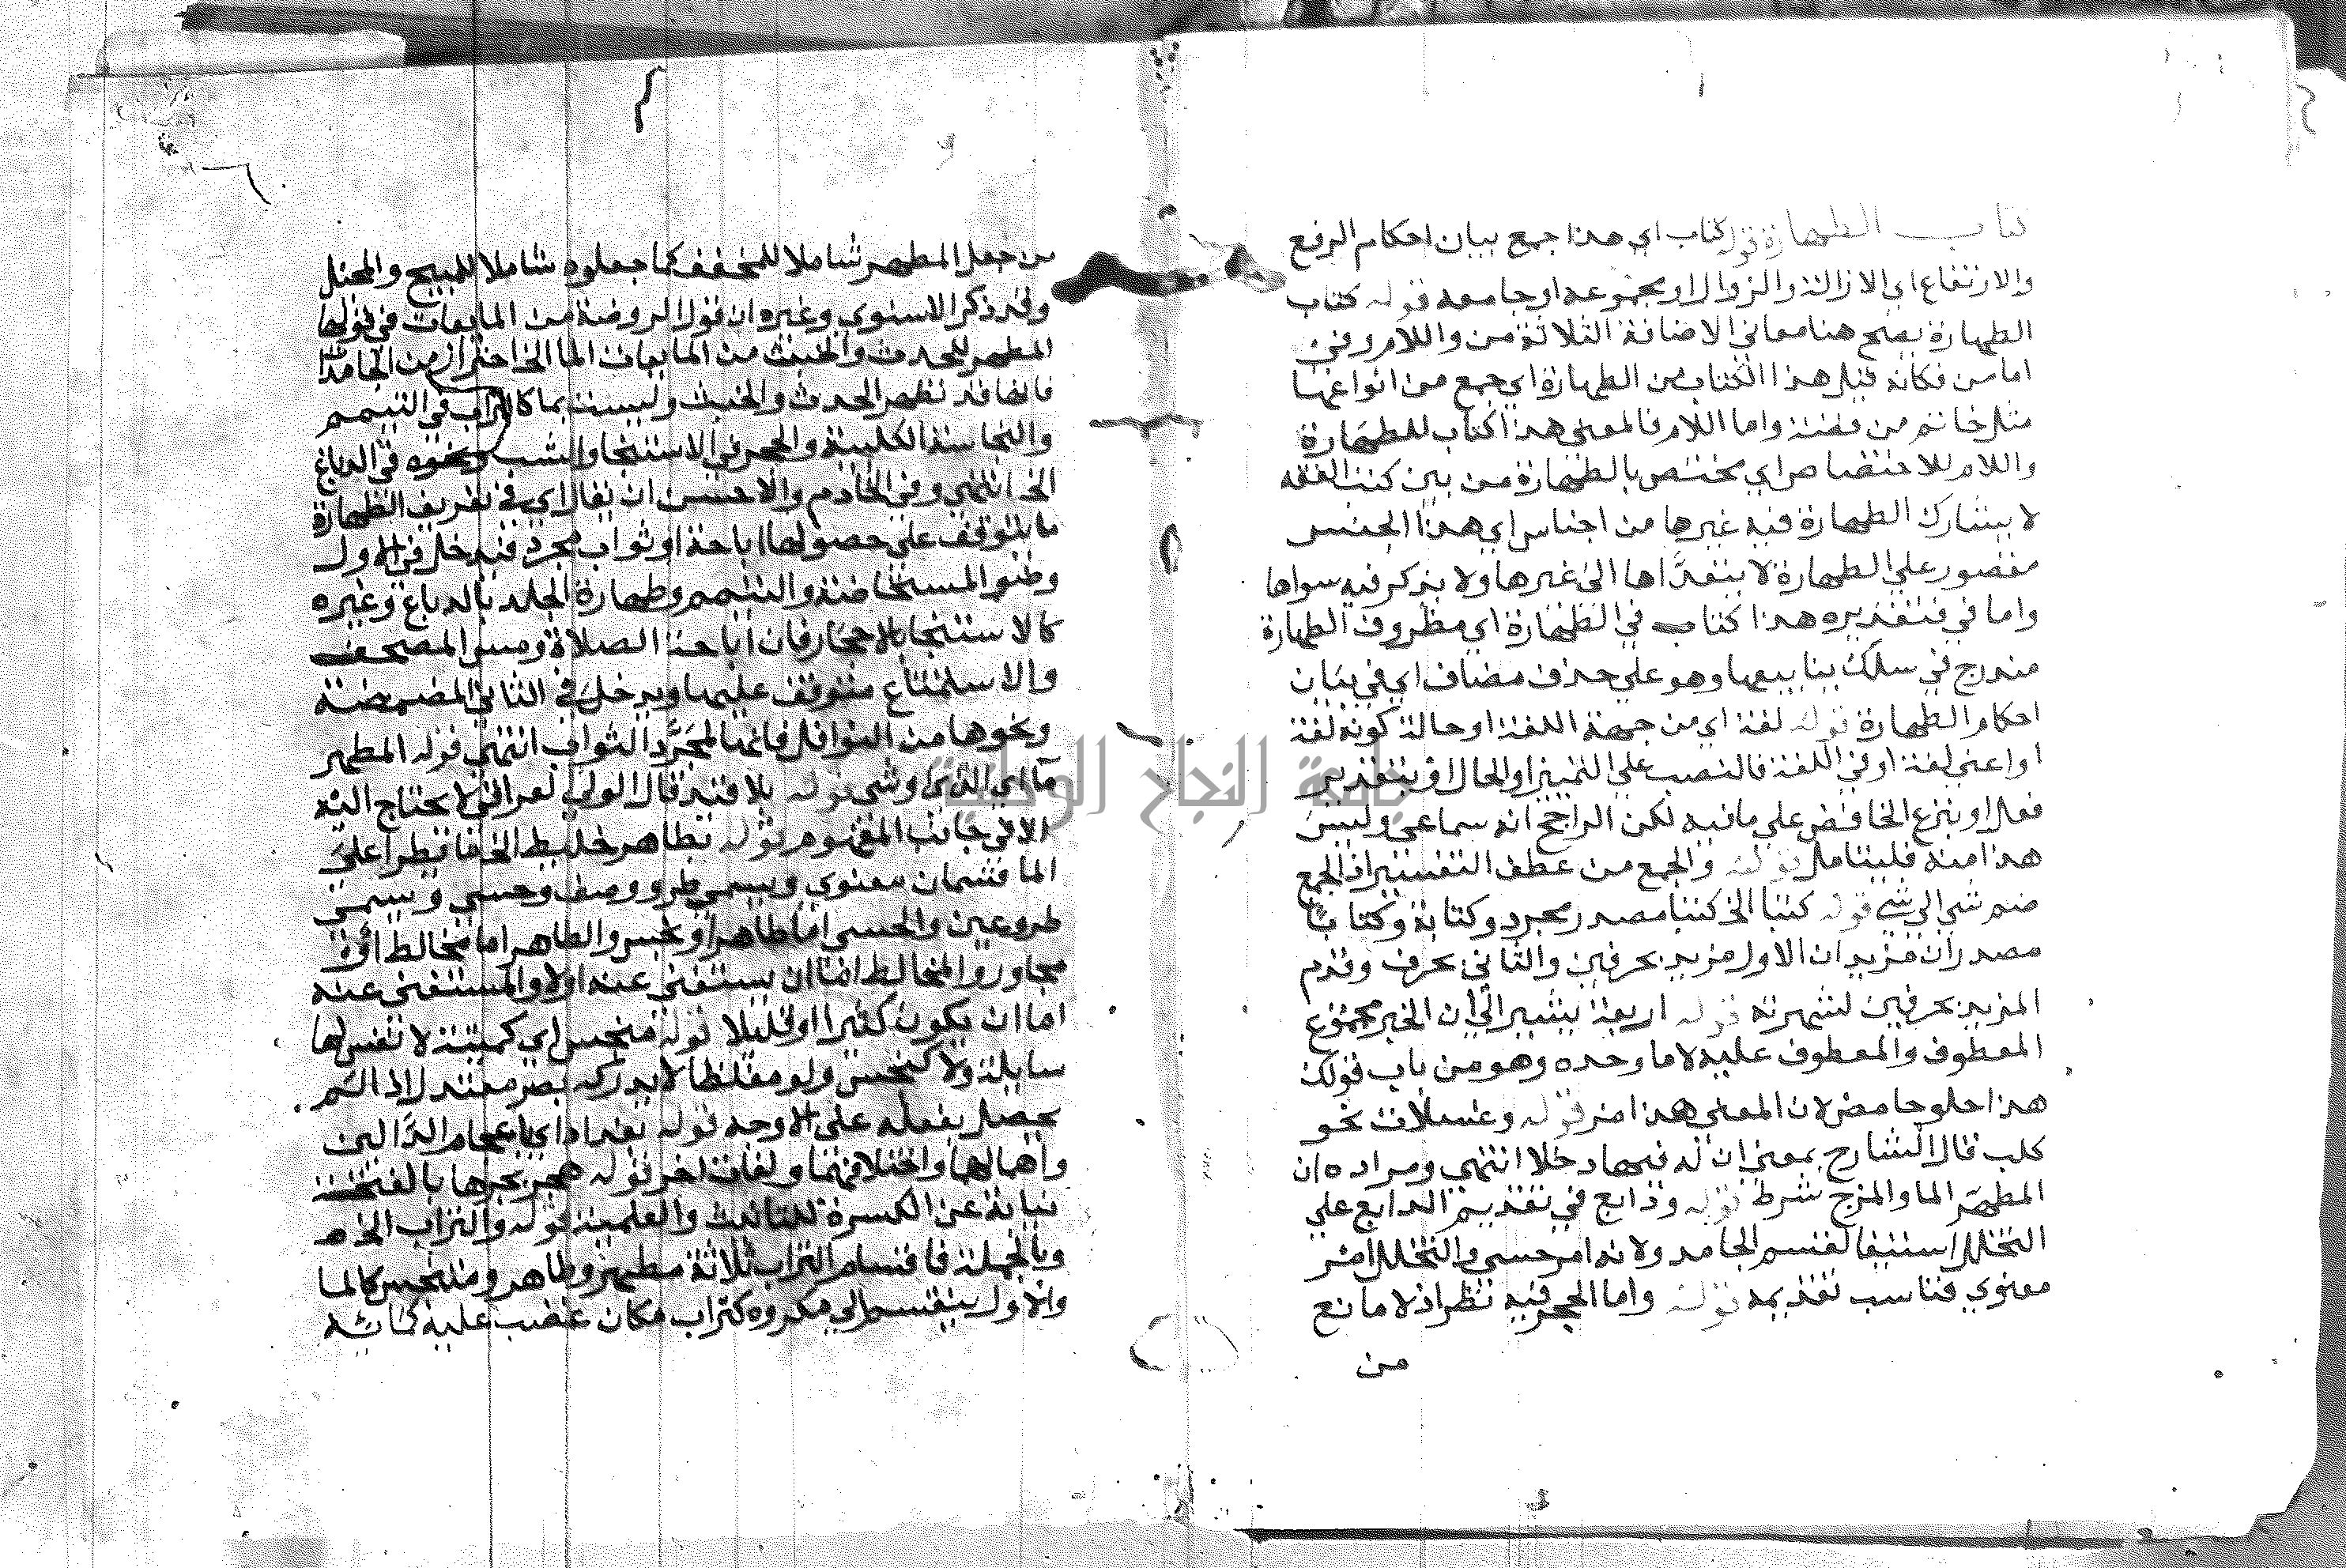 كتاب الطهارة قوله كتاب اي هذا جمع بيان احكام الرفع
والارتفاع اي الازالة والزوال او مجموعه او جامعه قوله كتاب
الطهارة يصح هنا معاني الاضافة الثلاثة من واللام وفي
اما من فكانه قيل هذا الكتاب من الطهارة اي جمع من انواعها
مثل خاتم من فضة واما اللام فالمعنى هذا كتاب للطهارة
واللام للاختصاص اي مختص بالطهارة من بين كتب الفقه
لا يشارك الطهارة فيه غيرها من اجناس اي هذا الجنس
مقصور على الطهارة لا يتعداها الى غيرها ولا يذكر فيه سواها
واما في فتقديره هذا كتاب في الطهارة اي مظروف الطهارة
مندرج في سلك ينابيعها وهو على حذف مضاف اي في بيان
احكام الطهارة قوله لغة اي من جهة اللغة او حالة كونه لغة
او اعني لغة او في اللغة فالنصب على التمييز او الحال او بتقدير
فعل او بنزع الخافض على ما فيه لكن الراجح انه سماعي وليس
هذا منه فليتامل قوله والجمع من عطف التفسير اذ الجمع
ضم شي الى شي قوله كتبا الخ كتبا مصدر مجرد وكتابة وكتابا
مصدران مزيدان الاول مزيد بحرفين والثاني بحرف وقدم
المزيد بحرفين لشهرته قوله اربعة يشير الى ان الخبر مجموع
المعطوف والمعطوف عليه لا ما وحده وهو من باب قولك
هذا حلو حامض لان المعنى هذا مز قوله وغسلات نحو
كلب قال الشارح بمعنى ان له فيها دخلا انتهى ومراده ان
المطهر الما والمزج شرط قوله ودابغ في تقديم الدابغ على
التخلل استيفا لقسم الجامد ولانه امر حسي والتخلل امر
معنوي فناسب تقديمه قوله واما الحجر فيه نظر اذ لا مانع
من
من جعل المطهر شاملا للمخفف كما جعلوه شاملا للمبيح والمحلل
وقد ذكر الاسنوي وغيره ان قول الروضة من المايعات في قولها
المطهر للحدث والخبث من المايعات الما الخ احتراز من الجامدات
فانها قد تطهر الحدث والخبث وليست بما كالتراب في التيمم
والنجاسة الكلبية والحجر في الاستنجا والشب ونحوه في الدباغ
الخ انتهى وفي الخادم والاحسن ان يقال اي في تعريف الطهارة
ما يتوقف على حصولها اباحة او ثواب مجرد فيدخل في الاول
وضو المستحاضة والتيمم وطهارة الجلد بالدباغ وغيره
كالاستنجا بالاحجار فان اباحة الصلاة ومس المصحف
والاستمتاع متوقف عليها ويدخل في الثاني المضمضة
ونحوها من النوافل فانها لمجرد الثواب انتهى قوله المطهر
ما اي الذي او شي قوله بلا قيد قال الولي العراقي لا يحتاج اليه
الا في جانب المفهوم قوله بطاهر خليط الخ ما يطرا على
الما قسمان معنوي ويسمى طرو وصف وحسي ويسمى
طرو عين والحسي اما طاهر او نجس والطاهر اما مخالط او
مجاور والمخالط اما ان يستغنى عنه اولا والمستغنى عنه
اما ان يكون كثيرا او قليلا قوله منجس اي كميتة لا نفس لها
سايلة ولا كنجس ولو مغلظا لا يدركه بصر معتدل اذا لم
يحصل بفعله على الاوجه قوله بغداد اي باعجام الدالين
واهمالهما واختلافهما ولغات اخر قوله هجر بجرها بالفتحة
نيابة عن الكسرة للتانيث والعلمية قوله والتراب الخ هو
وبالجملة فاقسام التراب ثلاثة مطهر وطاهر ومتنجس كالما
والاول ينقسم الى مكروه كتراب مكان غضب عليه كمائه
جامعة النجاح الوطنية